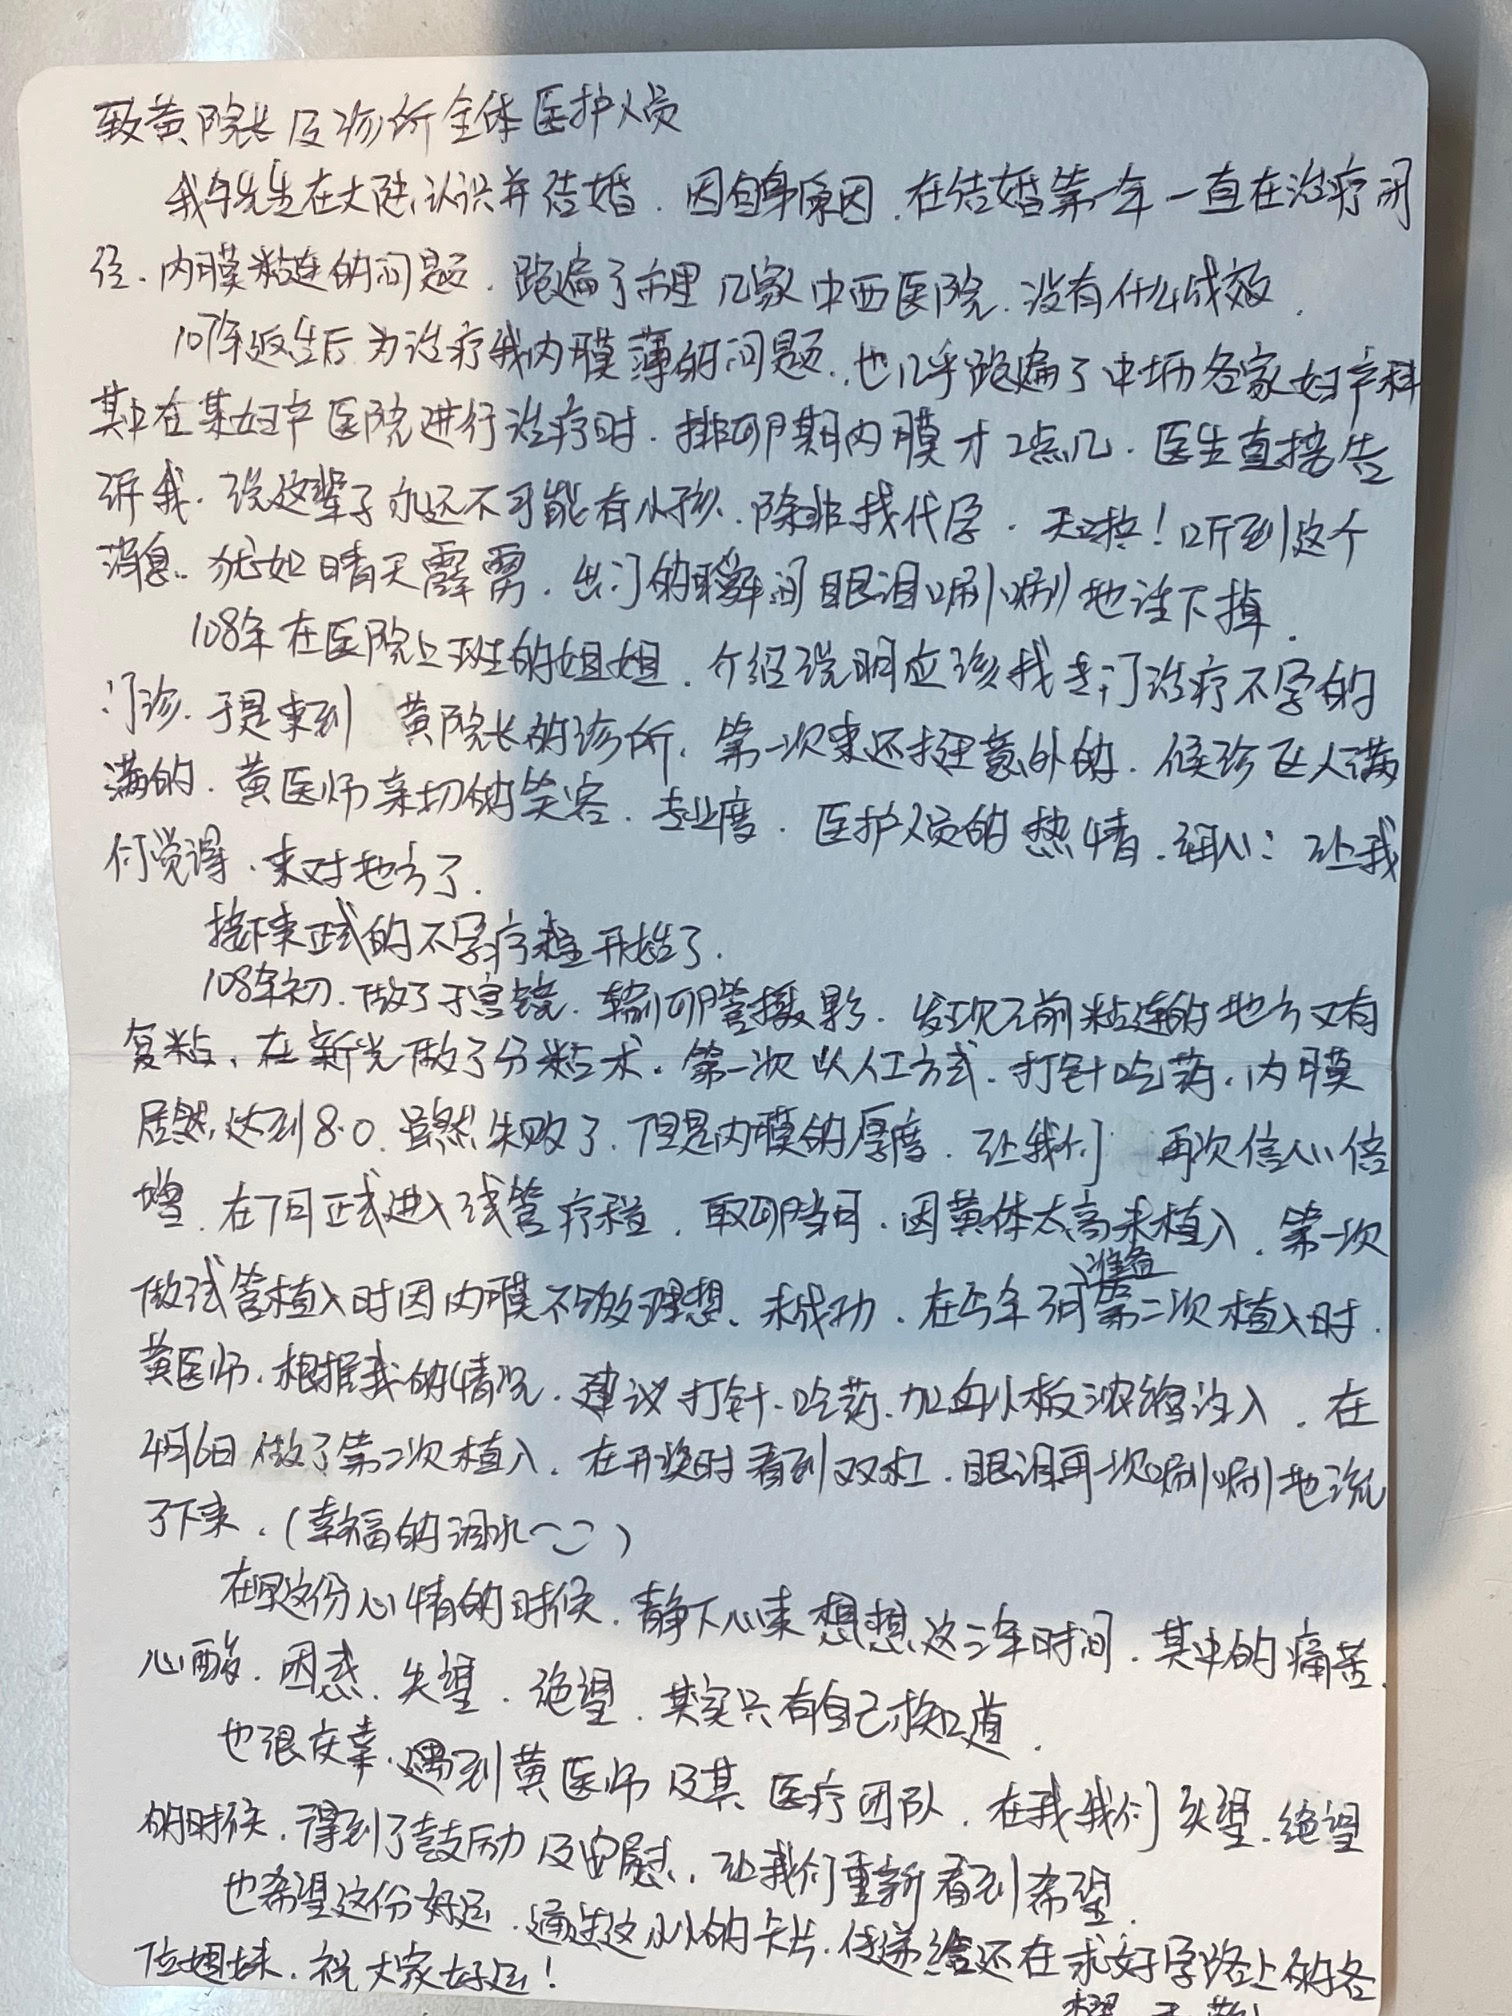 致黄院长及诊所全体医护人员
我与先生在大陆认识并结婚.因自身原因.在结婚第一年一直在治疗闭
经.内膜粘连的问题.跑遍了市里几家中西医院.没有什么成效.
107年返台后为治疗我内膜薄的问题.也几乎跑遍了中坜各家妇产科
其中在某妇产医院进行治疗时.排卵期内膜才2点几.医生直接告
诉我.说这辈子永远不可能有小孩.除非找代孕.天啦!听到这个
消息.犹如晴天霹雳.出门的瞬间眼泪唰唰地往下掉.
108年在医院上班的姐姐.介绍说明应该找专门治疗不孕的
门诊.于是来到黄院长的诊所.第一次来还挺意外的.候诊区人满
满的.黄医师亲切的笑容.专业度.医护人员的热情.细心:让我
们觉得.来对地方了.
接下来正式的不孕疗程开始了.
108年初.做了子宫镜.输卵管摄影.发现之前粘连的地方又有
复粘.在新光做了分粘术.第一次以人工方式.打针吃药.内膜
居然达到8.0.虽然失败了.但是内膜的厚度.让我们再次信心倍
增.在7月正式进入试管疗程.取卵当月.因黄体太高未植入.第一次
做试管植入时因内膜不够理想.未成功.在今年3月准备第二次植入时.
黄医师.根据我的情况.建议打针.吃药.加血小板浓缩注入.在
4月6日做了第二次植入.在开奖时看到双杠.眼泪再一次唰唰地流
了下来.(幸福的泪水~)
在写这份心情的时候.静下心来想想这三年时间.其中的痛苦.
心酸.困惑.失望.绝望.其实只有自己才知道.
也很庆幸.遇到黄医师及其医疗团队.在我我们失望.绝望
的时候.得到了鼓励及安慰.让我们重新看到希望.
也希望这份好运.通过这小小的卡片.传递给还在求好孕路上的各
位姐妹.祝大家好运!